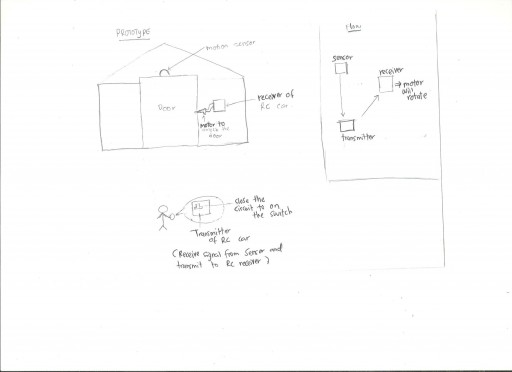 PROTOTYPE
motion sensor
Door
receiver of
RC car
motor to
door
close the
circuit to on
the switch
Transmitter
of RC car
(Receive signal from sensor and
transmit to RC receiver)
Flow
sensor
receiver
⇒ motor
will
rotate
transmitter